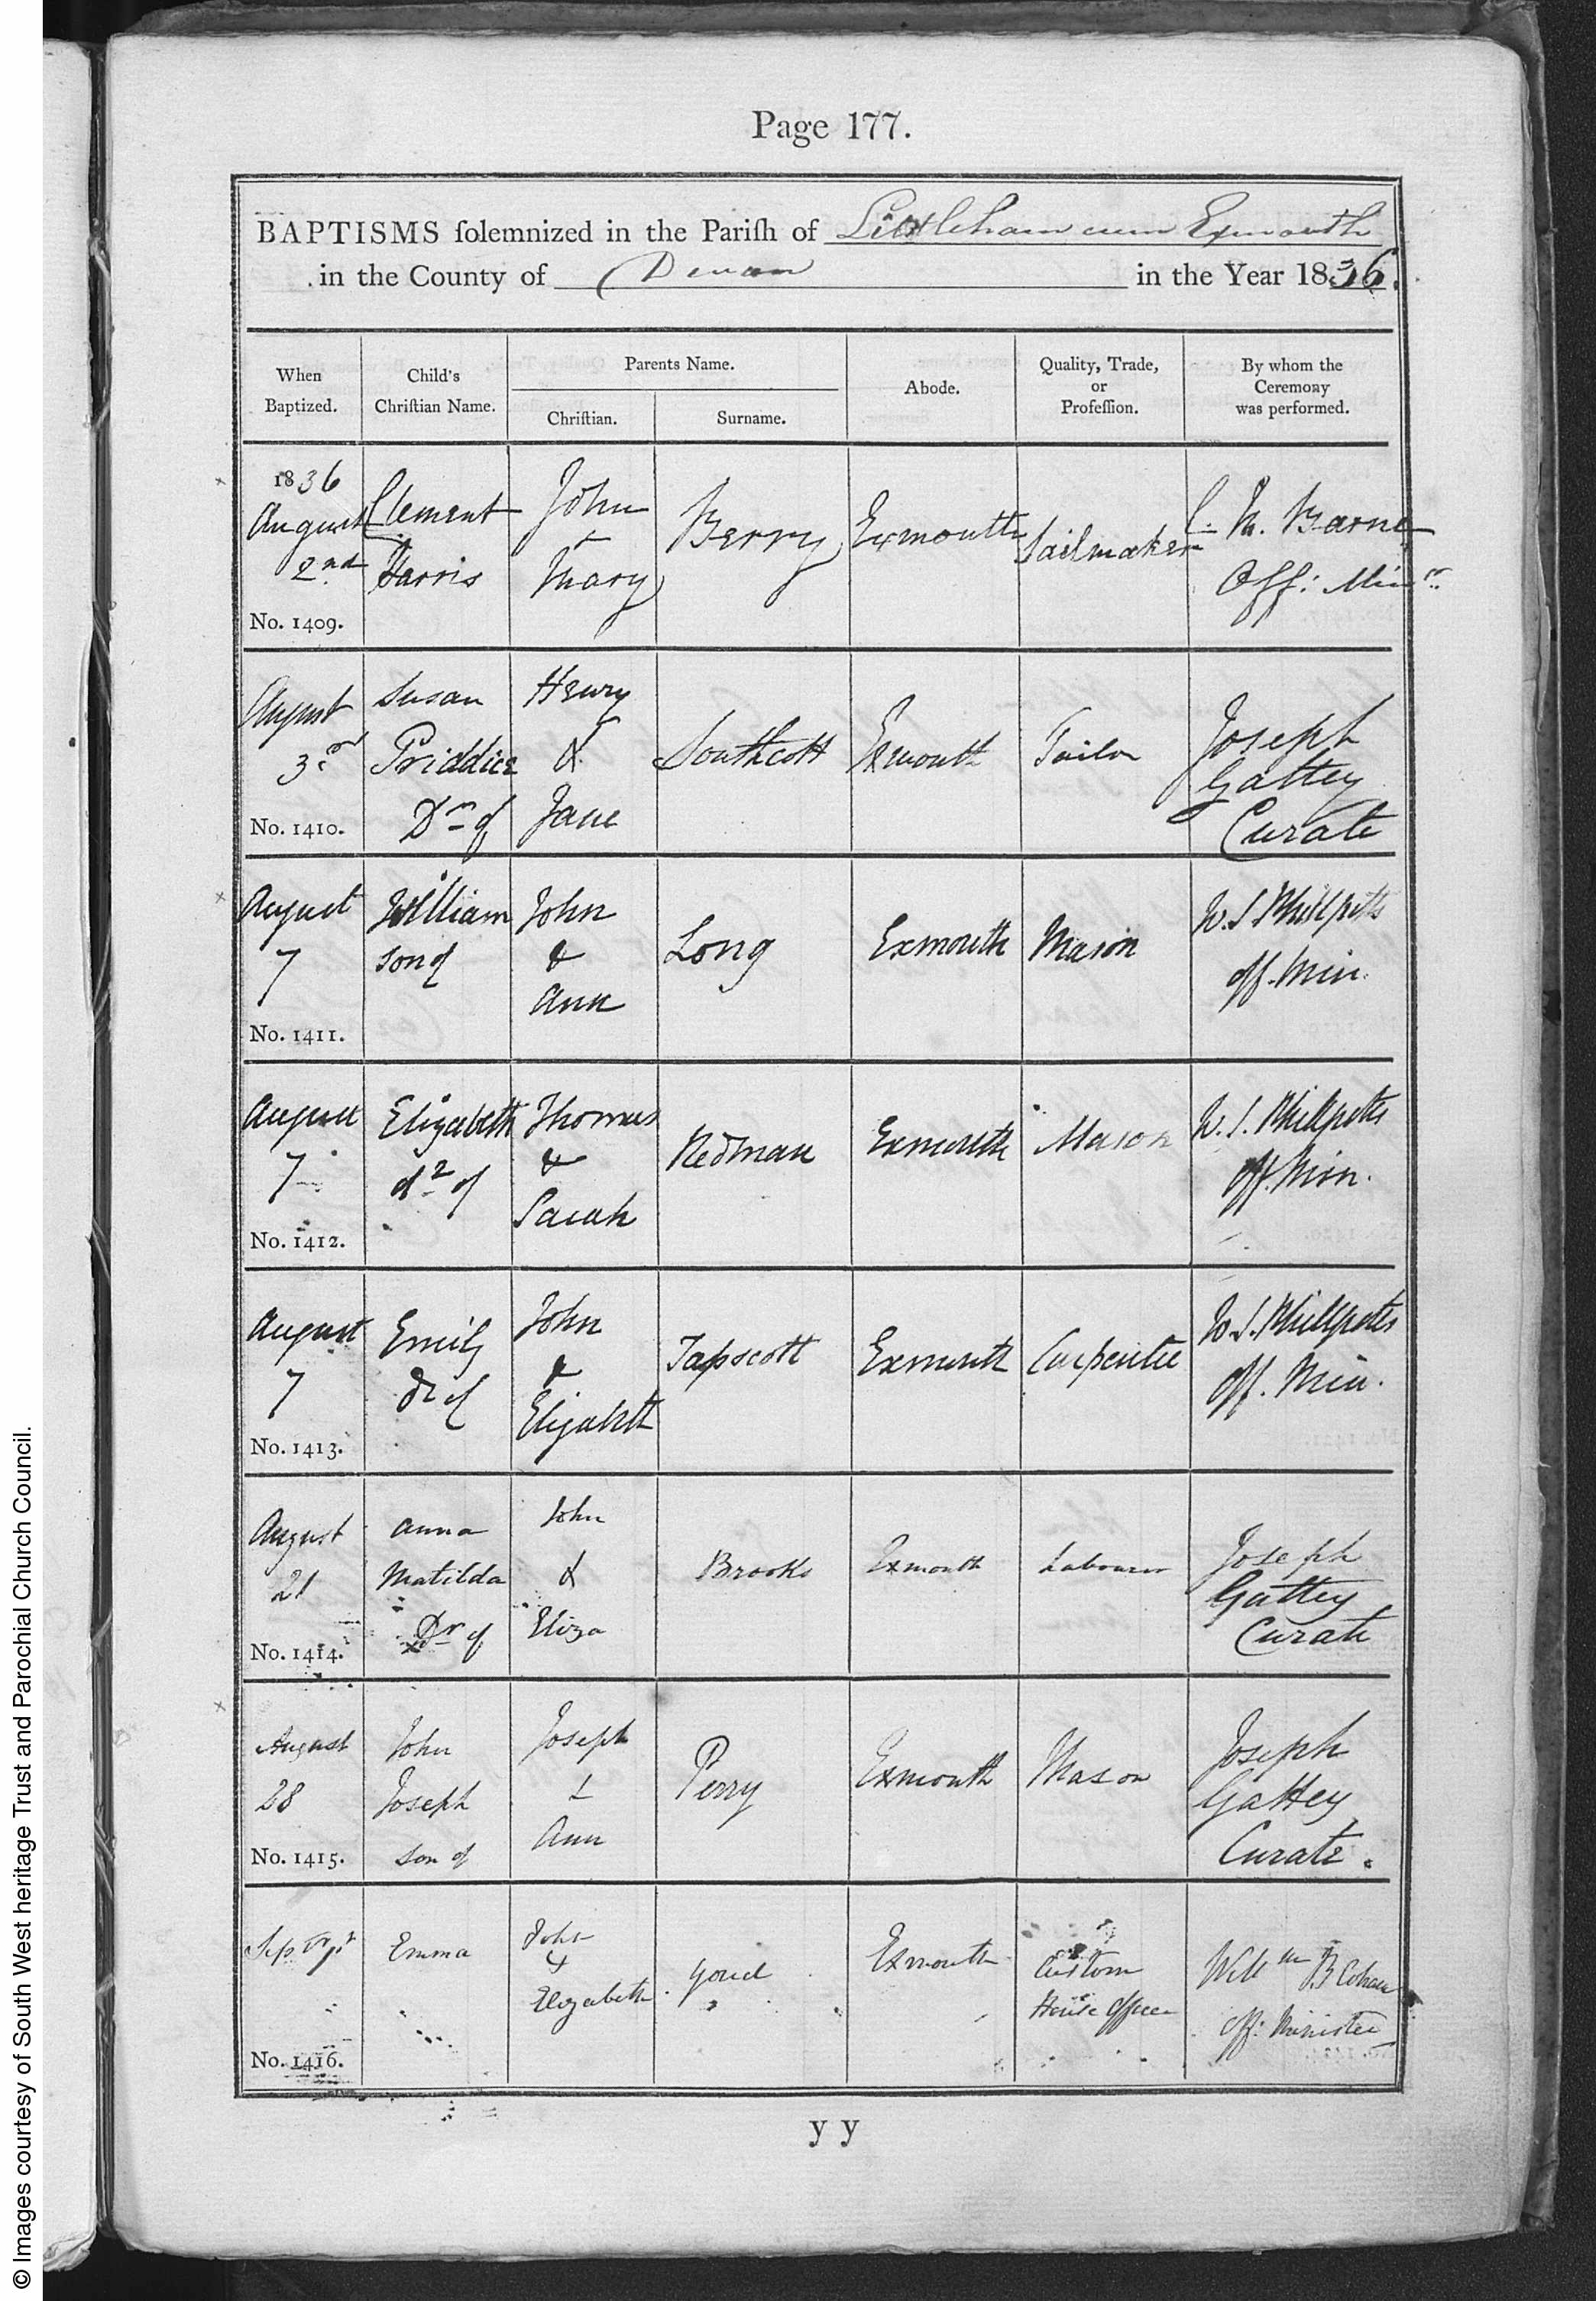 Page 177.
BAPTISMS solemnized in the Parish of Littleham cum Exmouth
in the County of Devon in the Year 1836.
When Baptized.
Child's Christian Name.
Parents Name.
Christian.
Surname.
Abode.
Quality, Trade, or Profession.
By whom the Ceremony was performed.
1836
August
2nd
No. 1409.
Clement
Harris
John
+
Mary
Berry
Exmouth
Sailmaker
C. M. Barne
Off: Minr.
August
3rd
No. 1410.
Susan
Priddice
Dr of
Henry
&
Jane
Southcott
Exmouth
Tailor
Joseph
Gattey
Curate
August
7
No. 1411.
William
son of
John
&
Ann
Long
Exmouth
Mason
W. J. Phillpotts
off. Min.
August
7
No. 1412.
Elizabeth
dr of
Thomas
&
Sarah
Redman
Exmouth
Mason
W. J. Phillpotts
off. Min.
August
7
No. 1413.
Emily
dr of
John
&
Elizabeth
Tapscott
Exmouth
Carpenter
W. J. Phillpotts
off. Min.
August
21
No. 1414.
Anna
Matilda
Dr of
John
&
Eliza
Brooks
Exmouth
Labourer
Joseph
Gattey
Curate
August
28
No. 1415.
John
Joseph
son of
Joseph
&
Ann
Perry
Exmouth
Mason
Joseph
Gattey
Curate.
No. 1416.
Emma
John
&
Elizabeth
Exmouth
Custom
House Officer
Willm B Coham
off: Minister
y y
© Images courtesy of South West heritage Trust and Parochial Church Council.